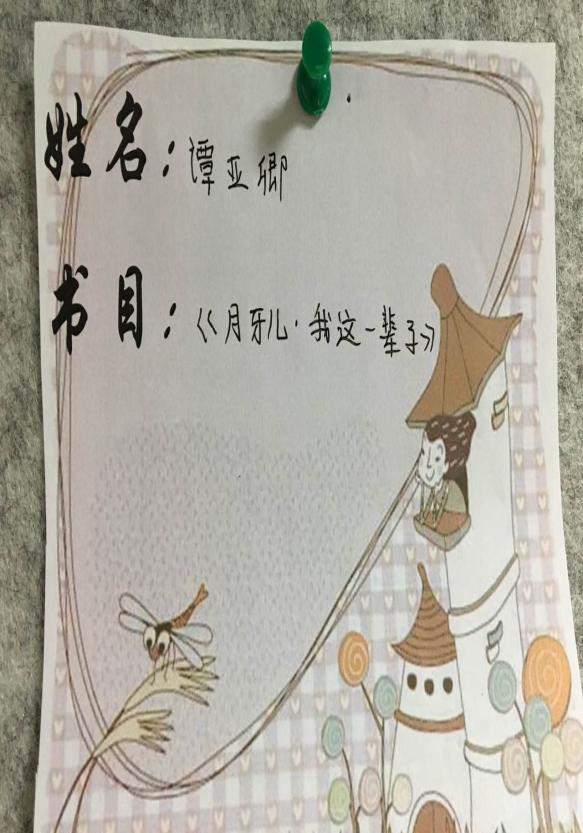 姓名：谭亚卿
书目：《月牙儿·我这一辈子》